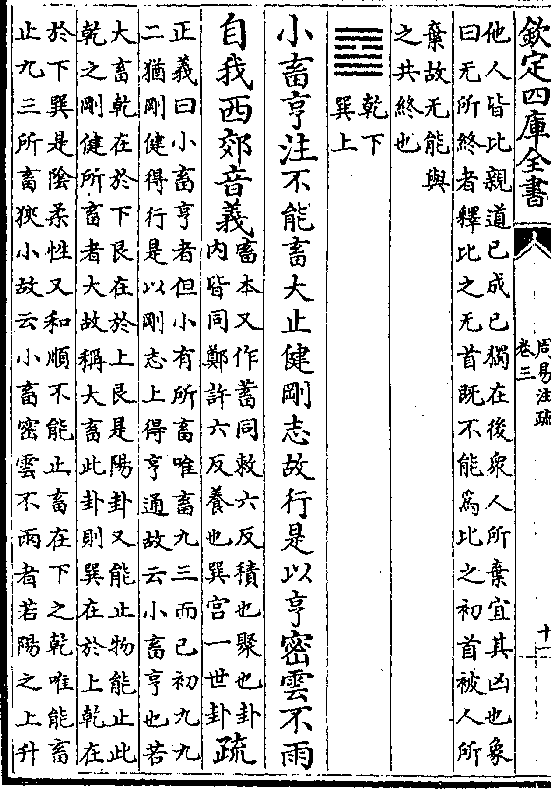 欽定四庫全書
周易注疏
卷三
十一
他人皆比親道已成已獨在後衆人所棄宜其凶也象
曰无所終者釋比之无首既不能為比之初首被人所
棄故无能與
之共終也
乾下
巽上
小畜亨注不能畜大止健剛志故行是以亨密雲不雨
自我西郊音義畜本又作蓄同敕六反積也聚也卦
内皆同鄭許六反養也巽宫一世卦疏
正義曰小畜亨者但小有所畜唯畜九三而已初九九
二猶剛健得行是以剛志上得亨通故云小畜亨也若
大畜乾在於下艮在於上艮是陽卦又能止物能止此
乾之剛健所畜者大故稱大畜此卦則巽在於上乾在
於下巽是陰柔性又和順不能止畜在下之乾唯能畜
止九三所畜狹小故云小畜密雲不雨者若陽之上升